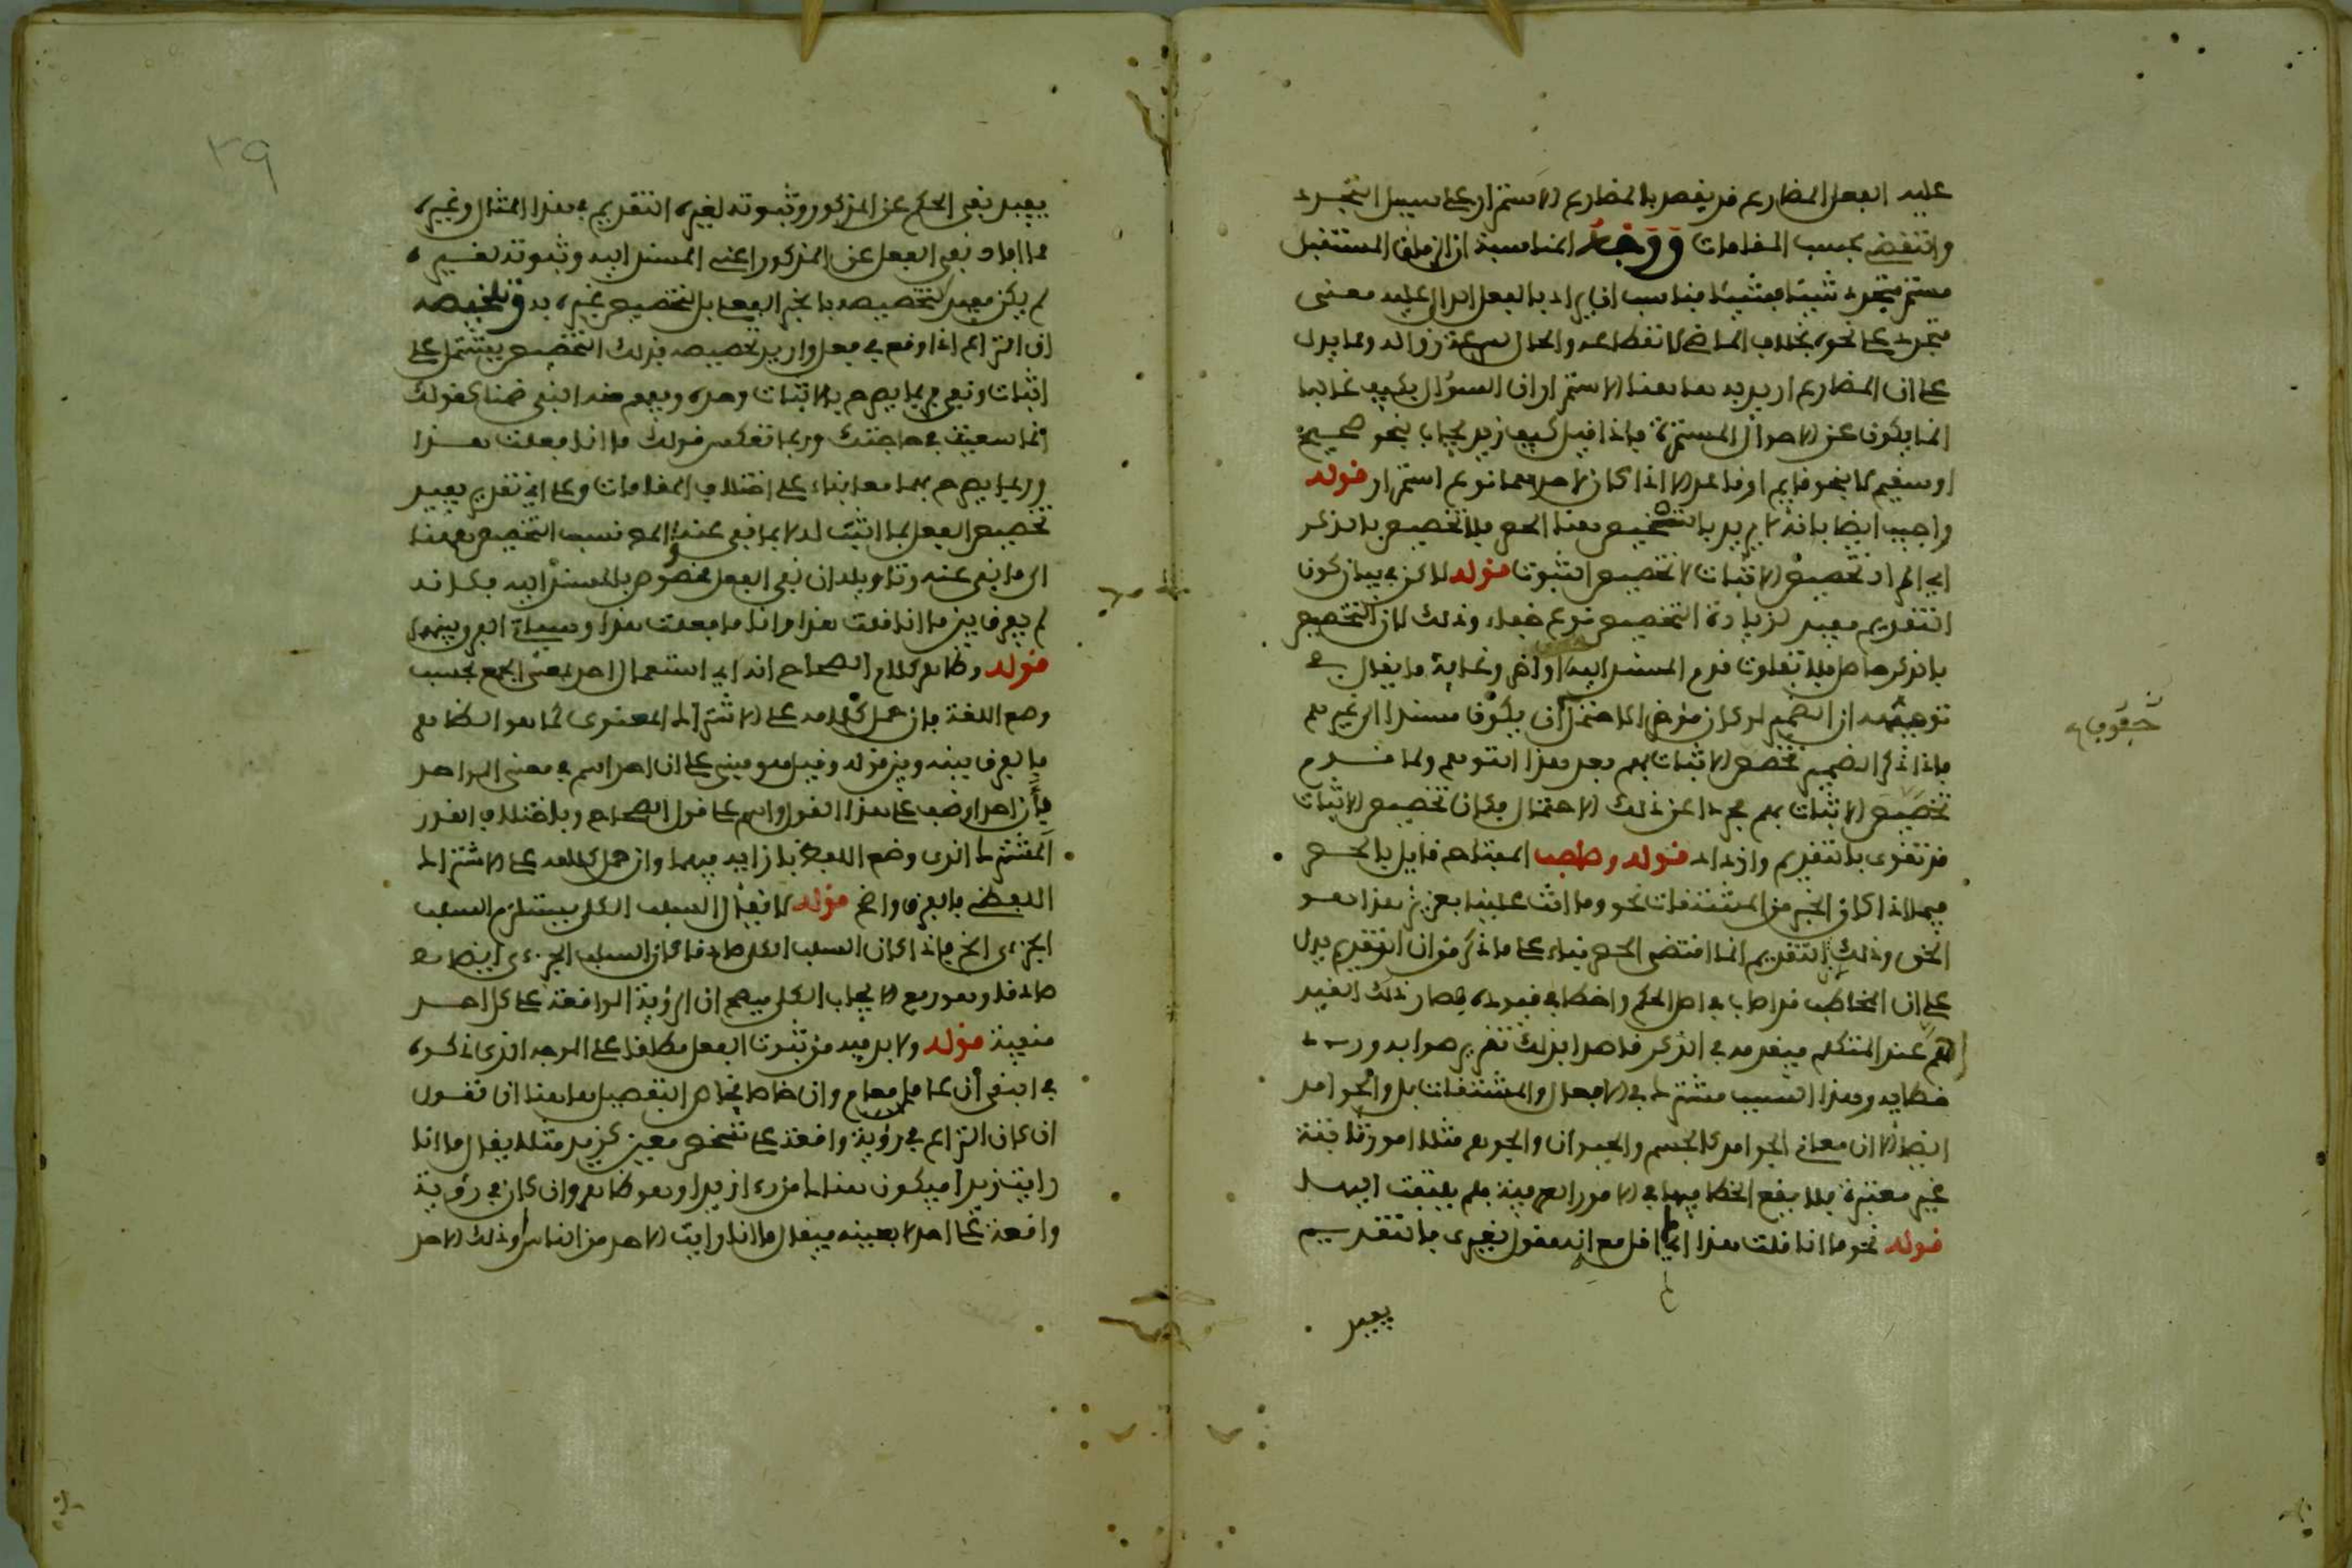 عليه الفعل المضارع قد يقصد بالمضارع الاستمرار على سبيل التجدد
والتقضي بحسب المقامات ووجه المناسبة ان الزمان المستقبل
مستمر متجدد شيئا فشيئا فناسب ان يراد بالفعل الدال عليه معنى
متجدد على نحوه بخلاف الماضي لانقطاعه والحال لسرعة زواله ومما يدل
على ان المضارع اريد به هاهنا الاستمرار ان السؤال بكيف غالبا
انما يكون عن الاحوال المستمرة فاذا قيل كيف زيد يجاب بنحو صحيح
او سقيم لا بنحو قايم او قاعد الا اذا كان لاحدهما نوع استمرار قوله
واجيب ايضا بانه لم يرد بالتخصيص هنا الحصر بل التخصيص بالذكر
اي المراد تخصيص الاثبات لا تخصيص الثبوت قوله لاكن في بيان كون
التقديم مفيد لزيادة التخصيص نوع خفاء وذلك لان التخصيص
بالذكر حاصل بلا تفاوت قدم المسند اليه او اخر وغاية ما يقال في
توجيهه ان الضمير لو كان مؤخرا لاحتمل ان يكون مسندا الى غيرهم
فاذا ذكر الضمير تخصص الاثبات بهم بعد هذا التوهم ولما قدم
تخصيص الاثبات بهم مجردا عن ذلك الاحتمال فكان تخصيص الاثبات
قد تقوى بالتقديم وازداد قوله وصاحب المفتاح قايل بالحصر
فيما اذا كان الخبر من المشتقات نحو وما انت علينا بعزيز هذا هو
الحق وذلك ان التقديم انما اقتضى الحصر بناء على ما ذكر من ان التقديم يدل
على ان المخاطب قد اصاب في اصل الحكم واخطا في قيوده فصار ذلك القيد
اهم عند المتكلم فيقدمه في الذكر قاصدا بذلك تقرير صوابه ورد
خطايه وهذا السبب مشترك في الافعال والمشتقات بل والجوامد
ايضا الا ان معاني الجوامد كالجسم والحيوان والجوهر مثلا امور ثابتة
غير معتبرة فلا يقع الخطا فيها في الامور العرفية فلم يلتفت اليها
قوله نحو ما انا قلت هذا اي لم اقله مع انه مقول لغيري فالتقديم
يفيد
حقوف
٣٩
يفيد نفي الحكم عن المذكور وثبوته لغيره التقديم في هذا المثال وغيره
مما افاد نفي الفعل عن المذكور اعني المسند اليه وثبوته لغيره
لم يكن مفيد لتخصيصه بالخبر الفعلي بل لتخصيص غيره به وتلخيصه
ان النزاع اذا وقع في فعل واريد تخصيصه فذلك التخصيص يشتمل على
اثبات ونفي فربما يصرح بالاثبات وحده ويفهم منه النفي ضمنا كقولك
انما سعيت في حاجتك وربما تعكس قولك ما انا فعلت هذا
وربما يصرح بهما معا بناء على اختلاف المقامات وعلى اي تقدير يفيد
تخصيص الفعل بما اثبت له لا بما نفي عنه والمص نسب التخصيص هاهنا
الى ما نفي عنه وتاويله ان نفي الفعل مخصوص بالمسند اليه فكانه
لم يفرق بين ما انا قلت هذا وانا ما فعلت هذا وسياتي الفرق بينهما
قوله وظاهر كلام الصحاح انه اي استعمال احد بمعنى الجمع بحسب
وضع اللغة فان حمل كلامه على الاشتراك المعنوي كما هو الظاهر
فالفرق بينه وبين قوله وقيل هو مبني على ان احد اسم في معنى الواحد
فان احدا وصف على هذا القول واسم على قول الصحاح وباختلاف القدر
المشترك الذي وضع اللفظ بازايه فيهما وان حمل كلامه على الاشتراك
اللفظي فالفرق واضح قوله لا نقال السلب الكلي يستلزم السلب
الجزءي الخ فاذا كان السلب الكلي صادقا كان السلب الجزءي ايضا
صادقا وهو رفع الايجاب الكلي فيصح ان الرؤية الواقعة على كل احد
منفية قوله ولا بد فيه من ثبوت الفعل مطلقا على الوجه الذي ذكره
في النفي ان عاما فعام وان خاصا فخاص التفصيل هاهنا ان نقول
ان كان النزاع في رؤية واقعة على شخص معين كزيد مثلا يقال ما انا
رايت زيدا فيكون هناك من رءا زيدا وهو ظاهر وان كان في رؤية
واقعة على احد لا بعينه فيقال ما انا رايت الاحد من الناس وذلك الاحد